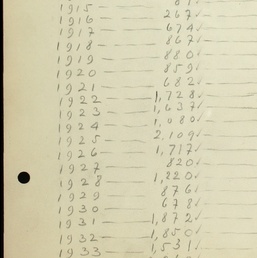 1915 — 81✓
1916 — 267✓
1917 — 674✓
1918 — 867✓
1919 — 880✓
1920 — 859✓
1921 — 682✓
1922 — 1,728✓
1923 — 1,637✓
1924 — 1,080✓
1925 — 2,109✓
1926 — 1,717✓
1927 — 820✓
1928 — 1,820✓
1929 — 876✓
1930 — 678✓
1931 — 1,872✓
1932 — 1,850✓
1933 — 1,531✓